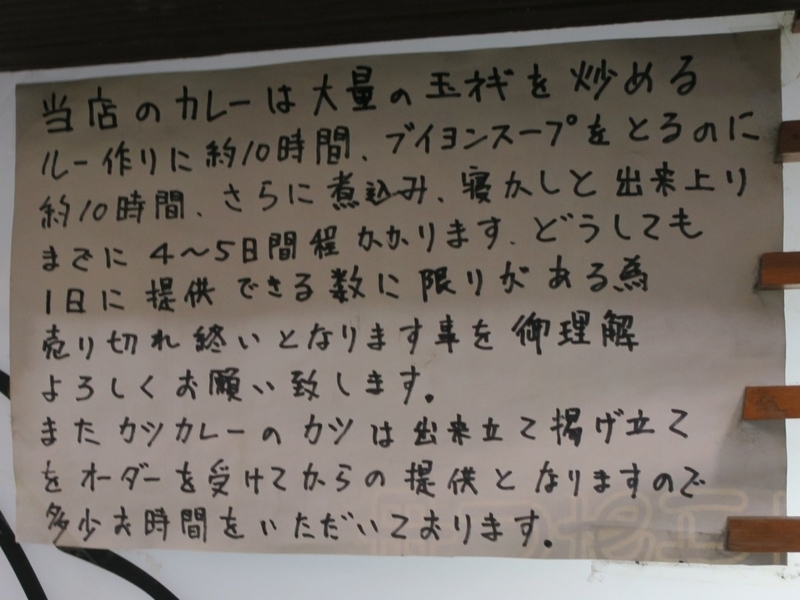 当店のカレーは大量の玉ネギを炒める
ルー作りに約10時間、ブイヨンスープをとるのに
約10時間、さらに煮込み、寝かしと出来上り
までに4〜5日間程かかります、どうしても
1日に提供できる数に限りがある為
売り切れ終いとなります事を御理解
よろしくお願い致します。
またカツカレーのカツは出来立て揚げ立て
をオーダーを受けてからの提供となりますので
多少お時間をいただいております。